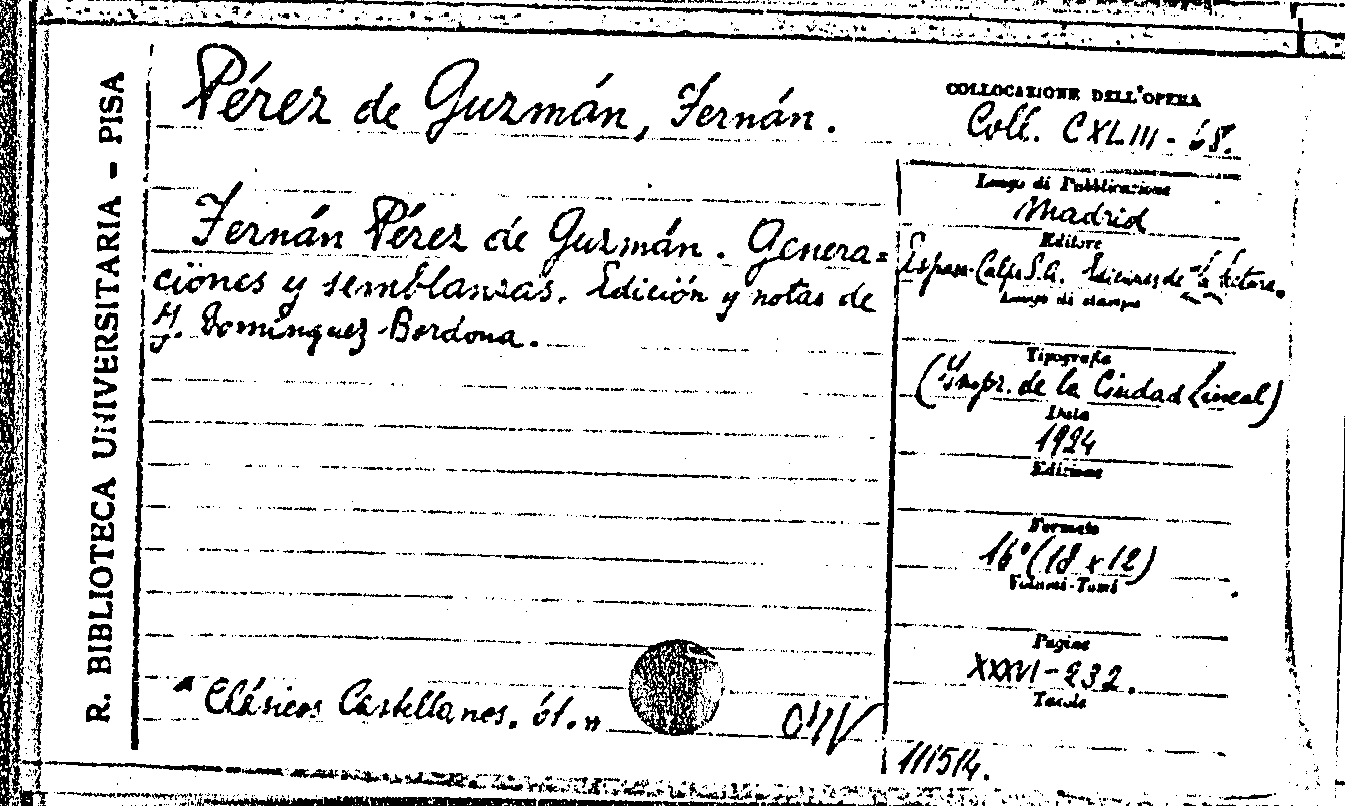 R. BIBLIOTECA UNIVERSITARIA - PISA
Pérez de Guzmán, Fernán.
COLLOCAZIONE DELL'OPERA
Coll. CXLIII - 68.
Fernán Pérez de Guzmán. Genera=
ciones y semblanzas. Edición y notas de
J. Domínguez-Bordona.
"Clásicos Castellanos. 61."
Luogo di Pubblicazione
Madrid
Editore
Espasa-Calpe S.A. Ediciones de "la lectura.
Luogo di stampa
Tipografia
(Impr. de la Ciudad Lineal)
Data
1924
Edizione
Formato
16° (18 x 12)
Volumi-Tomi
Pagine
XXXVI-232.
Tavole
111514.